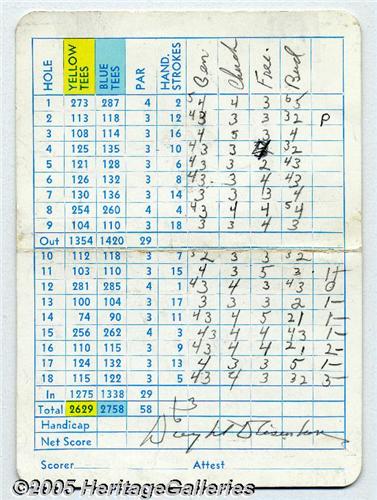 HOLE YELLOW TEES BLUE TEES PAR HAND. STROKES Ben Chuck Free. Bud
1 273 287 4 2 5 4 4 3 6 5
2 113 118 3 12 43 3 3 32 P
3 108 114 3 16 4 5 3 4
4 125 135 3 10 43 3 32
5 121 128 3 6 43 3 2 43
6 126 132 3 8 43 3 4 43
7 130 136 3 14 3 3 3 4
8 254 260 4 4 43 4 4 54
9 104 110 3 18 3 3 4 3
Out 1354 1420 29
10 112 118 3 7 32 3 3 32
11 103 110 3 15 4 3 5 3
12 281 285 4 1 43 4 3 43 0
13 100 104 3 17 3 3 3 2 1-
14 74 90 3 11 43 4 5 21 1-
15 256 262 4 3 43 4 4 43 1-
16 110 115 3 9 43 4 4 21 2-
17 124 132 3 13 4 3 3 5 1-
18 115 122 3 5 43 4 3 32 3-
In 1275 1338 29
Total 2629 2758 58
Handicap
Dwight D Eisenhower
Net Score
Scorer Attest
©2005 HeritageGalleries